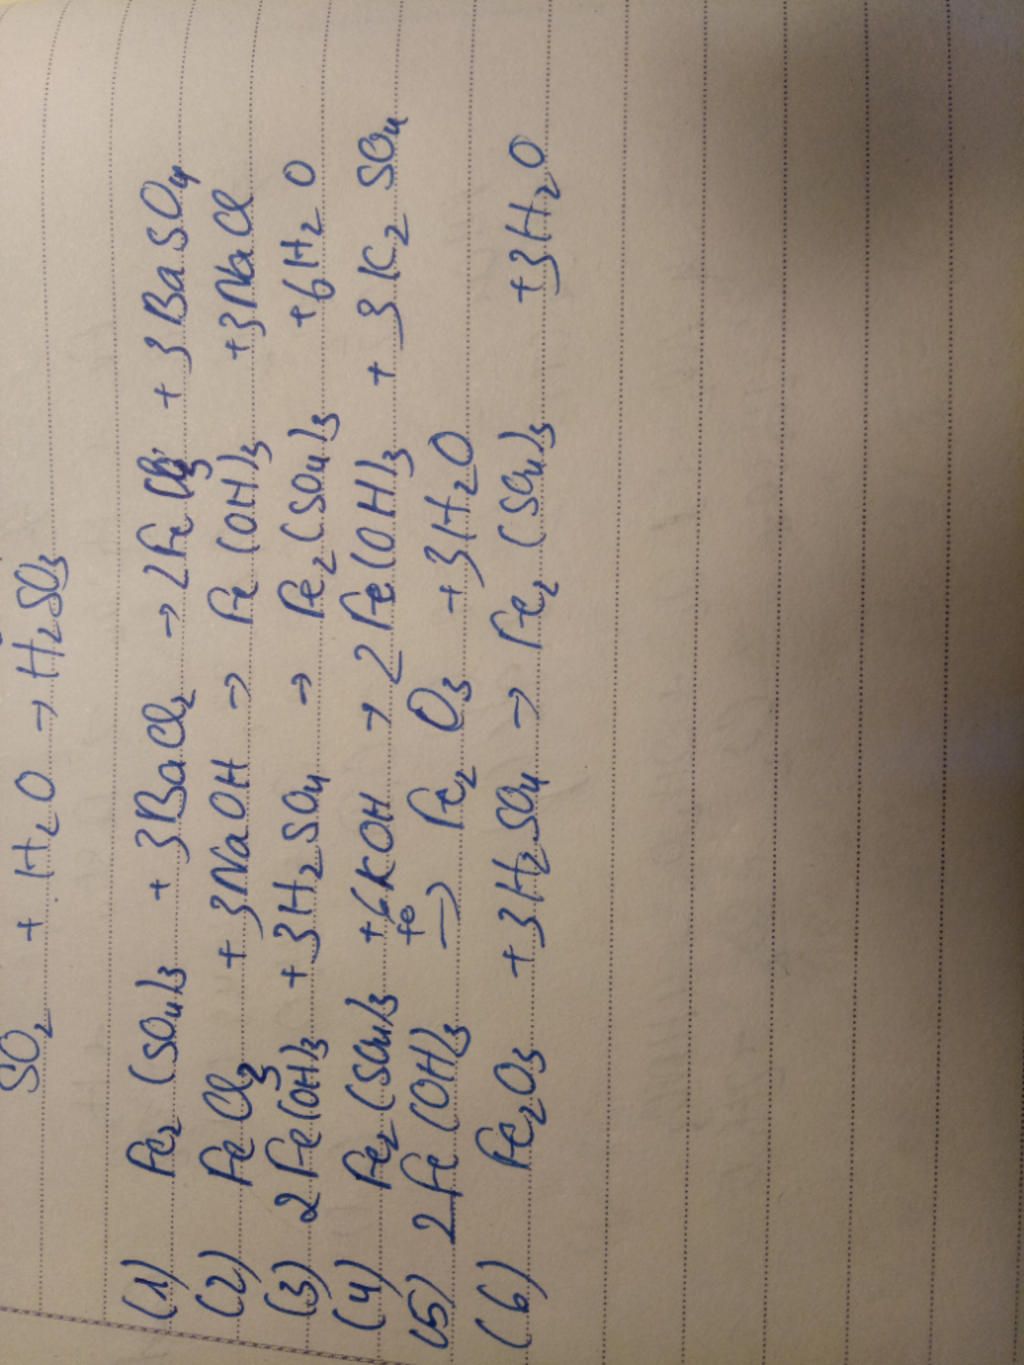 SO₂ + H₂O → H₂SO₃
(1) Fe₂(SO₄)₃ + 3BaCl₂ → 2FeCl₃ + 3BaSO₄
(2) FeCl₃ + 3NaOH → Fe(OH)₃ + 3NaCl
(3) 2Fe(OH)₃ + 3H₂SO₄ → Fe₂(SO₄)₃ + 6H₂O
(4) Fe₂(SO₄)₃ + 6KOH → 2Fe(OH)₃ + 3K₂SO₄
(5) 2Fe(OH)₃ → Fe₂O₃ + 3H₂O
(6) Fe₂O₃ + 3H₂SO₄ → Fe₂(SO₄)₃ + 3H₂O